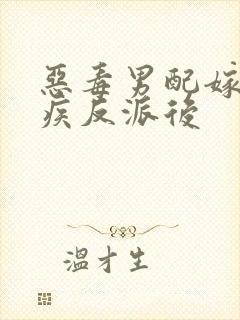 惡毒男配嫁
疾反派後
溫才生